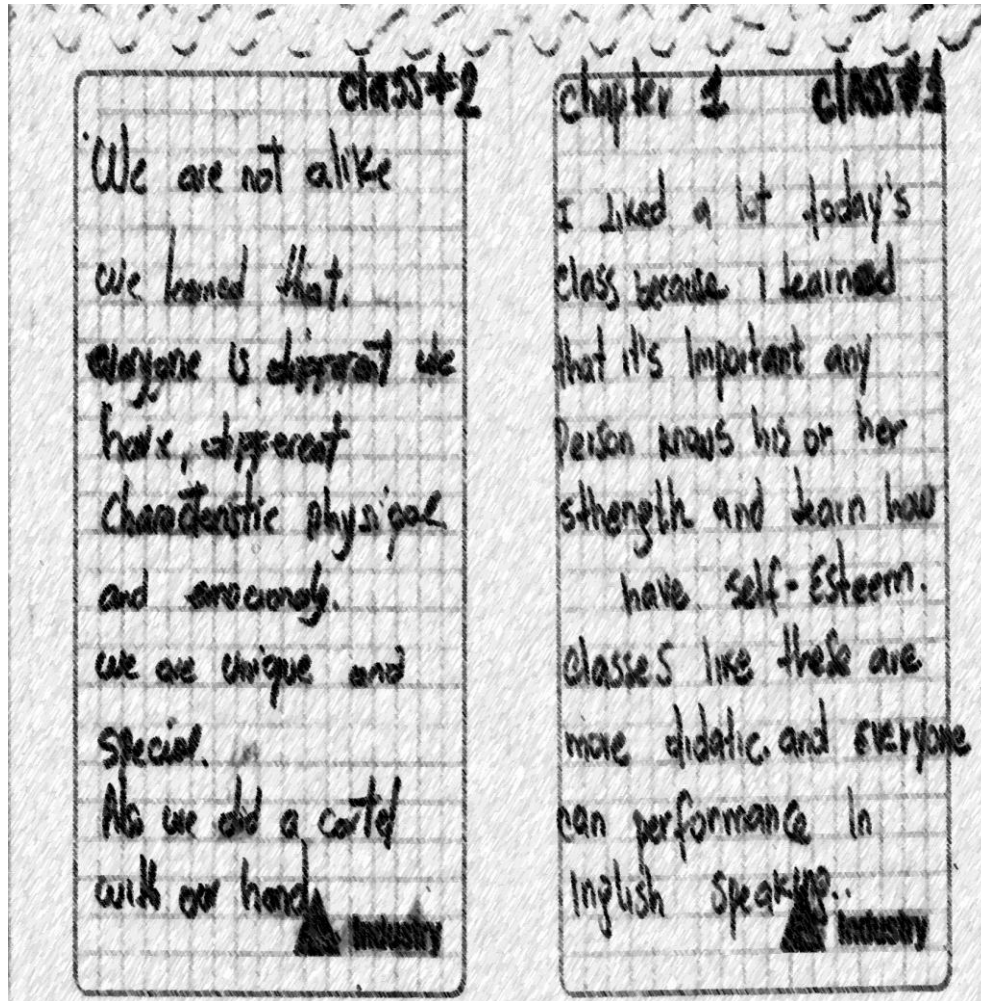 class #2
We are not alike
we learned that.
everyone is different we
have, different
characteristic physical
and emocionaly.
we are unique and
special.
Also we did a cartel
with our hand
Industry
chapter 1 class #1
I liked a lot today's
class because I learned
that it's Important any
person knows his or her
sthength and learn how
have self-Esteem.
classes like these are
more didatic. and everyone
can performance In
Inglish speaking..
Industry